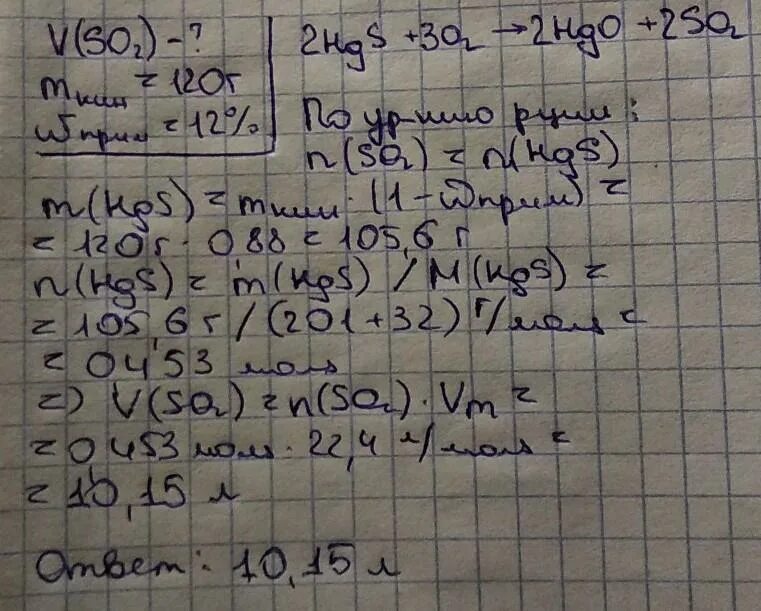 V(SO₂) - ?
mкин = 120г
ωприм = 12%
2HgS + 3O₂ → 2HgO + 2SO₂
По ур-нию р-ции:
n(SO₂) = n(HgS)
m(HgS) = mкин · (1-ωприм) =
= 120г · 0,88 = 105,6 г
n(HgS) = m(HgS) / M(HgS) =
= 105,6 г / (201+32) г/моль =
= 0,453 моль
=> V(SO₂) = n(SO₂) · Vm =
= 0,453 моль · 22,4 л/моль =
= 10,15 л
Ответ: 10,15 л